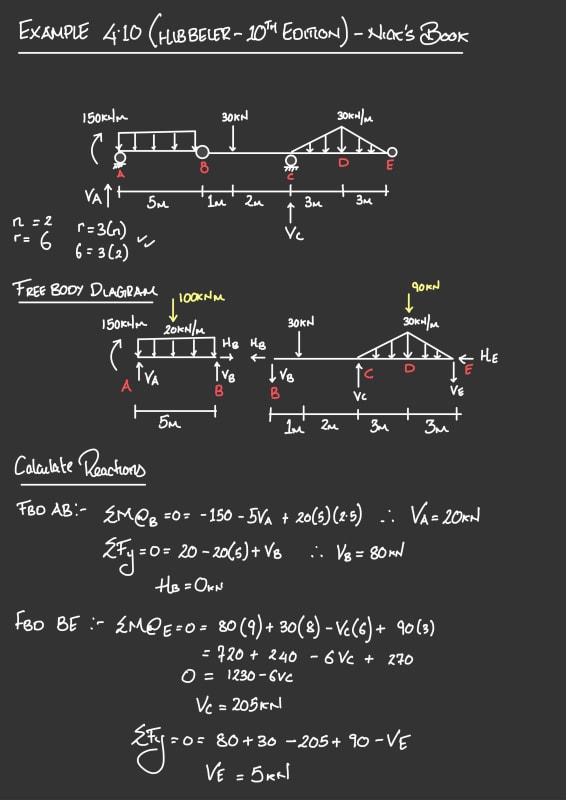 EXAMPLE 4.10 (HIBBELER - 10TH EDITION) - NICK'S BOOK
150KNM 30KN 30KN/M
A B C D E
VA 5M 1M 2M 3M 3M
VC
n = 2 r = 3(n)
r = 6 6 = 3(2) ✓
FREE BODY DIAGRAM
100KNM 90KN
150KNM 20KN/M HB HB 30KN 30KN/M HE
A VA VB B VB B VC C D VE E
5M 1M 2M 3M 3M
Calculate Reactions
FBD AB:- ΣM@B = 0 = -150 - 5VA + 20(5)(2.5) ∴ VA = 20KN
ΣFy = 0 = 20 - 20(5) + VB ∴ VB = 80KN
HB = 0KN
FBD BE :- ΣM@E = 0 = 80(9) + 30(8) - VC(6) + 90(3)
= 720 + 240 - 6VC + 270
0 = 1230 - 6VC
VC = 205KN
ΣFy = 0 = 80 + 30 - 205 + 90 - VE
VE = 5KN